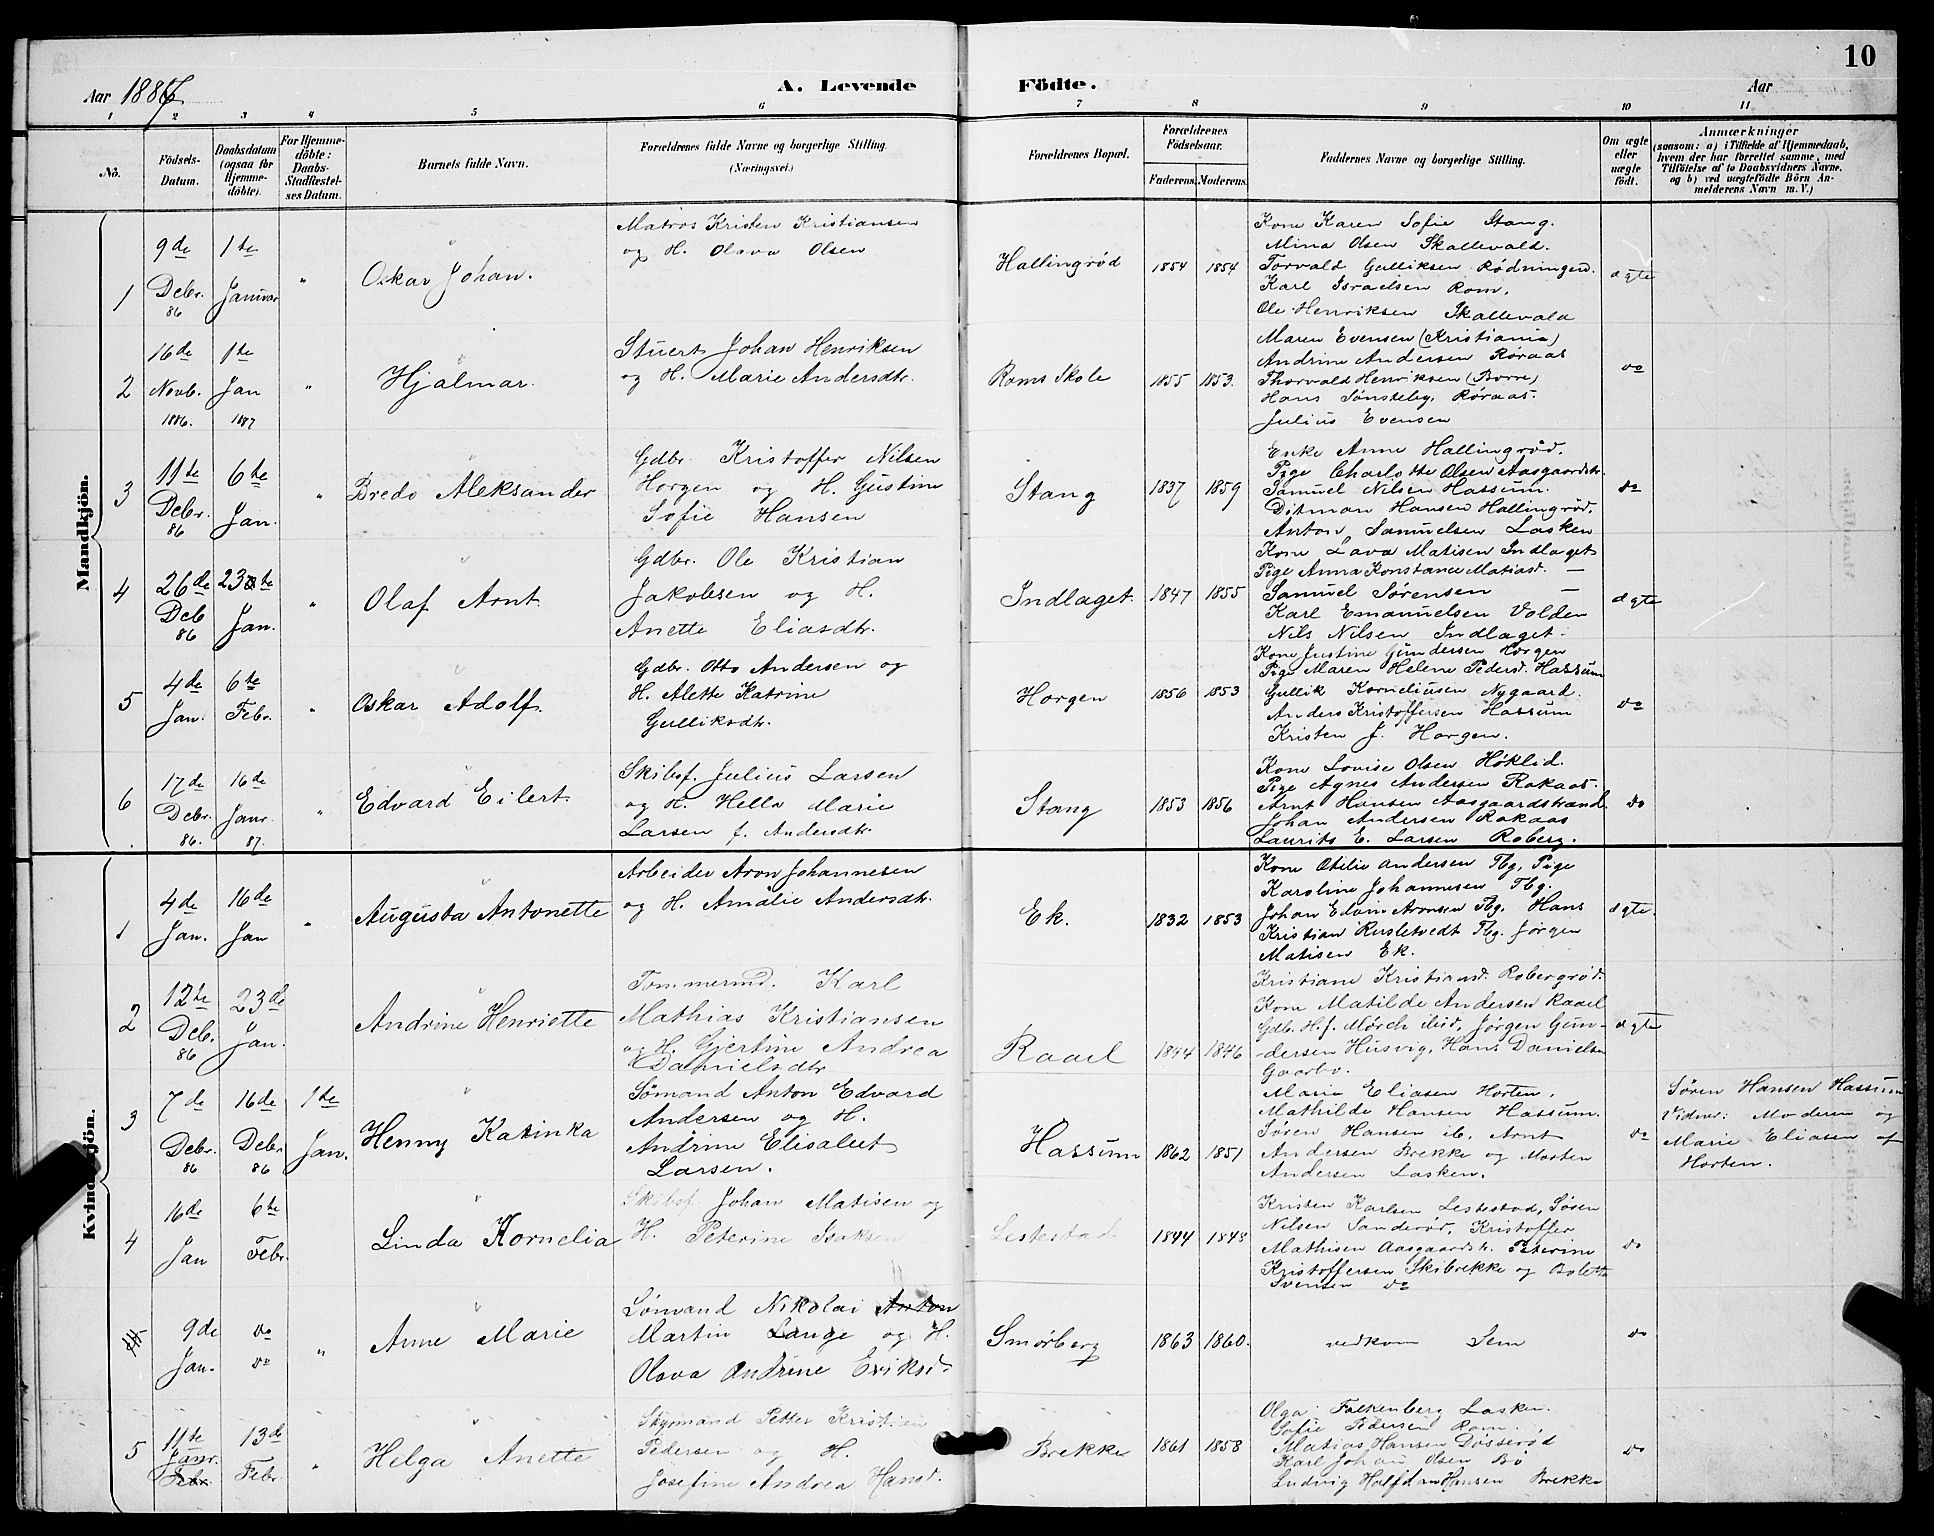 10
Aar 1887
A. Levende Födte.
Aar
1 2 3 4 5 6 7 8 9 10 11
No.
Födsels-Datum.
Daabsdatum (ogsaa for Hjemme-döbte).
For Hjemme-döbte: Daabs-Stadfæstel-ses Datum.
Barnets fulde Navn.
Forældrenes fulde Navne og borgerlige Stilling. (Næringsvei.)
Forældrenes Bopæl.
Forældrenes Födselsaar.
Faderens. Moderens.
Faddernes Navne og borgerlige Stilling.
Om ægte eller uægte födt.
Anmærkninger
(saasom: a) i Tilfælde af Hjemmedaab,
hvem der har forrettet samme, med
Tilföielse af to Daabsvidners Navne,
og b) ved uægtefödte Börn An-
melderens Navn m. V.)
Mandkjön.
1
9de Debr. 86
1te Januar
"
Oskar Johan.
Matros Kristen Kristiansen
og H. Olava Olsen
Hallingrød
1854 1854
Kone Karen Sofie Stang.
Mina Olsen Skallevald.
Torvald Gulliksen Rødningen.
Karl Israelsen Rom.
Ole Henriksen Skallevald
ægte
2
16de Novb. 1886.
1te Jan 1887
"
Hjalmar.
Stuert Johan Henriksen
og H. Marie Andersdtr.
Roms Skole
1855 1853.
Maren Evensen (Kristiania)
Andrine Andersen Røraas
Thorvald Henriksen (Borre)
Hans Sønsteby, Røraas.
Julius Evensen
do
3
11te Debr. 86
6te Jan.
"
Bredo Aleksander
Gdbr. Kristoffer Nilsen
Horgen og H. Gustine
Sofie Hansen
Stang
1837 1859
Enke Anne Hallingrød.
Pige Charlotte Olsen Aasgaardstr.
Samuel Nilsen Hassum.
Ditman Hansen Hallingrød.
Anton Samuelsen Lasken
do
4
26de Deb 86
23te Jan.
"
Olaf Arnt.
Gdbr. Ole Kristian
Jakobsen og H.
Anette Eliasdtr.
Indlaget.
1847 1855
Kone Lava Matisen Indlaget
Pige Anna Konstance Matiasd. —
Samuel Sørensen —
Karl Emanuelsen Volden
Nils Nilsen Indlaget.
ægte
5
4de Jan.
6te Febr.
"
Oskar Adolf.
Gdbr. Otto Andersen og
H. Alette Katrine
Gulliksdtr.
Horgen
1856 1853
Kone Justine Gundersen Horgen
Pige Maren Helene Pedersd. Hassum
Gullik Korneliusen Nygaard.
Anders Kristoffersen Hassum
Kristen J. Horgen.
do
6
17de Debr. 86.
16de Janr. 87.
"
Edvard Eilert.
Skibsf. Julius Larsen
og H. Hella Marie
Larsen f. Andersdtr.
Stang
1853 1856
Kone Lovise Olsen Høklid.
Pige Agnes Andersen Rakaas.
Arnt Hansen Aasgaardstrand.
Johan Andersen Rakaas
Laurits E. Larsen Roberg.
do
Kvindekjön.
1
4de Jan.
16de Jan
"
Augusta Antonette
Arbeider Aron Johannesen
og H. Amalie Andersdtr.
Ek.
1832 1853
Kone Otilie Andersen Tbg, Pige
Karoline Johannesen Tbg.
Johan Edvin Aronsen Tbg. Hans
Kristian Tbg. Jørgen
Matisen Ek.
ægte.
2
12te Debr. 86
23de Jan.
Andrine Henriette
Tømmermd. Karl
Mathias Kristiansen
og H. Gjertine Andrea
Danielsdtr
Raael
1844 1846
Kristiane Kristiansd. Robergrød.
Kone Matilde Andersen Raael
Gdb. H. J. Mørch ibid, Jørgen Gun-
dersen Husvig, Hans Danielsen
Gaarbo.
ægte
3
7de Debr. 86
16de Debr. 86
1te Jan.
Henny Katinka
Sømand Anton Edvard
Andersen og H.
Andrine Elisabet
Larsen.
Hassum
1862 1851
Marie Eliasen Horten,
Mathilde Hansen Hassum.
Søren Hansen ib. Arnt
Andersen Brekke og Morten
Andersen Lasken.
do
Søren Hansen Hassum
Vidner: Moderen og
Marie Eliasen af
Horten.
4
16de Jan
6te Febr.
Linda Kornelia
Skibsf. Johan Matisen og
H. Peterine Isaksen
Lestestad
1844 1848
Kristen Karlsen Lestestad, Søren
Nilsen Sanderød, Kristoffer
Mathisen Aasgaardstr. Peterine
Kristoffersen Skibrekke og Bolette
Svensen do
do
9de Jan.
do do
"
Anne Marie
Sømand Nikolai Anton
Martin Lange og H.
Olava Andrine Eriksd.
Smørberg
1863 1860.
vedkom Sem
do
5
11te Janr. Febr.
13de Febr.
"
Helga Anette
Styrmand Petter Kristian
Pedersen og H.
Josefine Andrea Hansd.
Brekke
1861 1858
Olga Falkenberg Lasken.
Sofie Pedersen Rom.
Matias Hansen Døsserød
Karl Johan Olsen Bø
Ludvig Halfdan Hansen Brekke
do